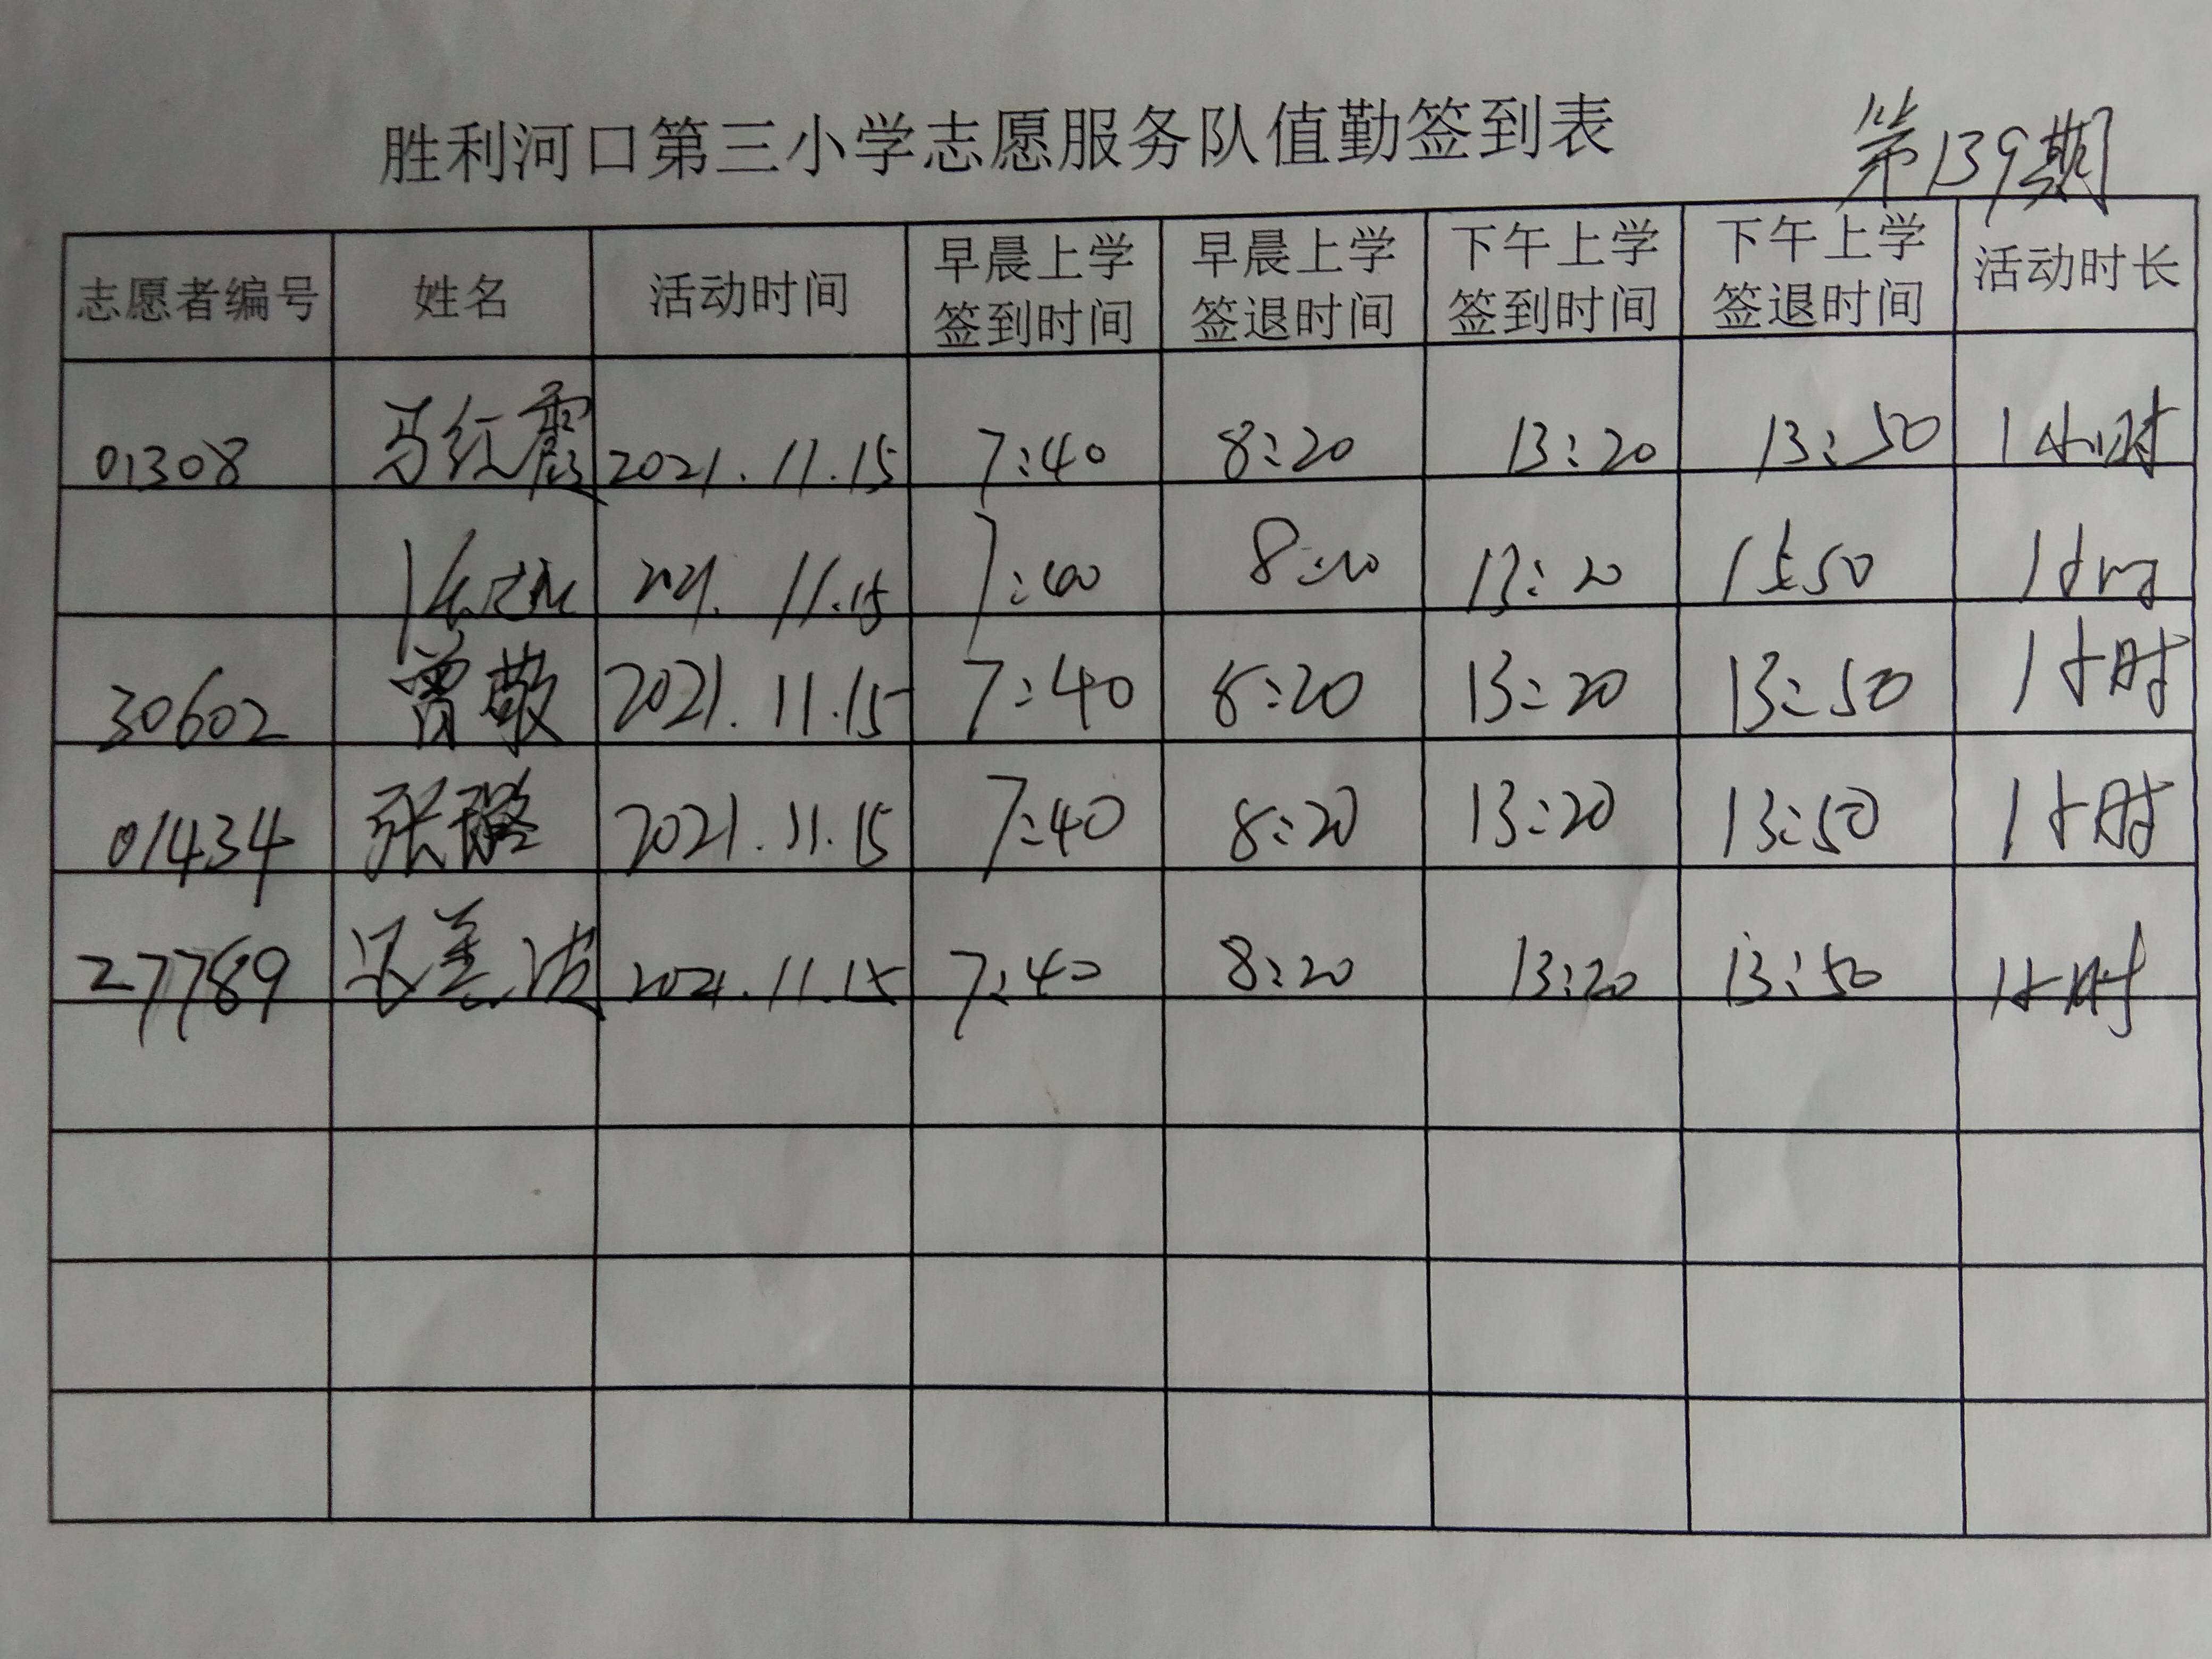 胜利河口第三小学志愿服务队值勤签到表 第139期
志愿者编号 姓名 活动时间 早晨上学签到时间 早晨上学签退时间 下午上学签到时间 下午上学签退时间 活动时长
01308 马红霞 2021.11.15 7:40 8:20 13:20 13:50 1小时
2021. 11.15 7:40 8:20 13:20 13:50 1小时
30602 曾敬 2021.11.15 7:40 8:20 13:20 13:50 1小时
01434 张璐 2021.11.15 7:40 8:20 13:20 13:50 1小时
27789 2021.11.15 7:40 8:20 13:20 13:50 1小时